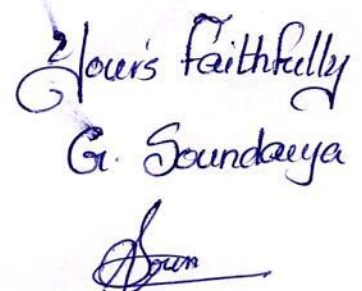 Your's Faithfully
G. Soundarya
Soun